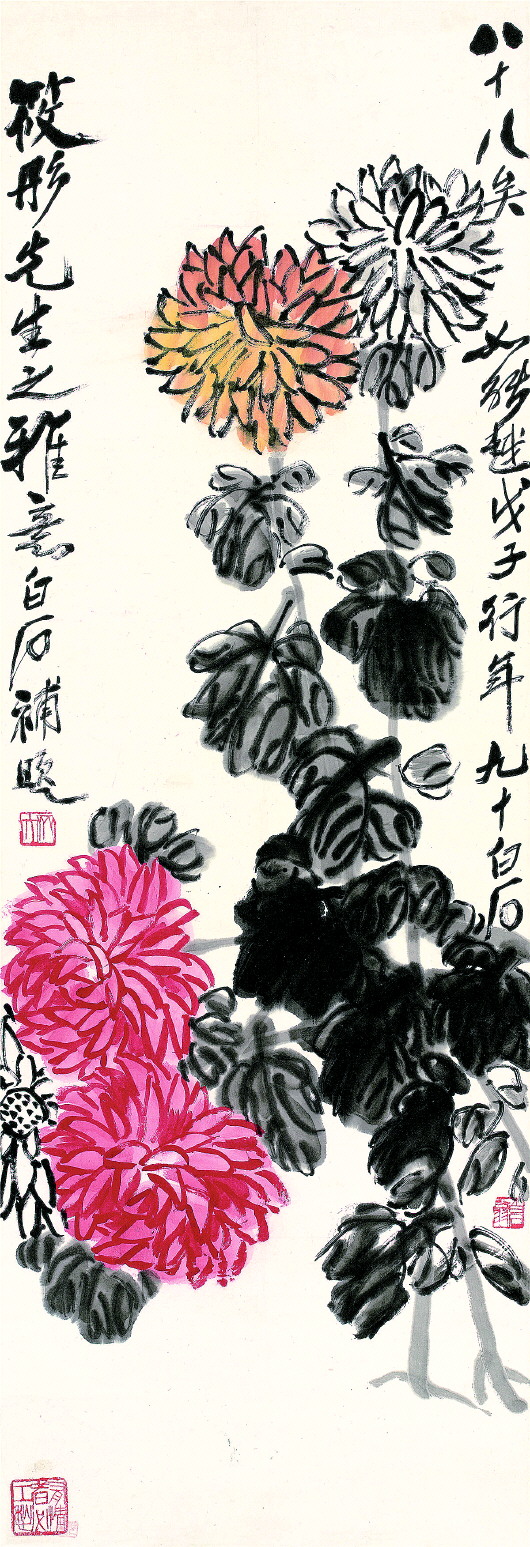 八十八矣 如能越戊子行年九十白石
筱彤先生之雅意白石補題